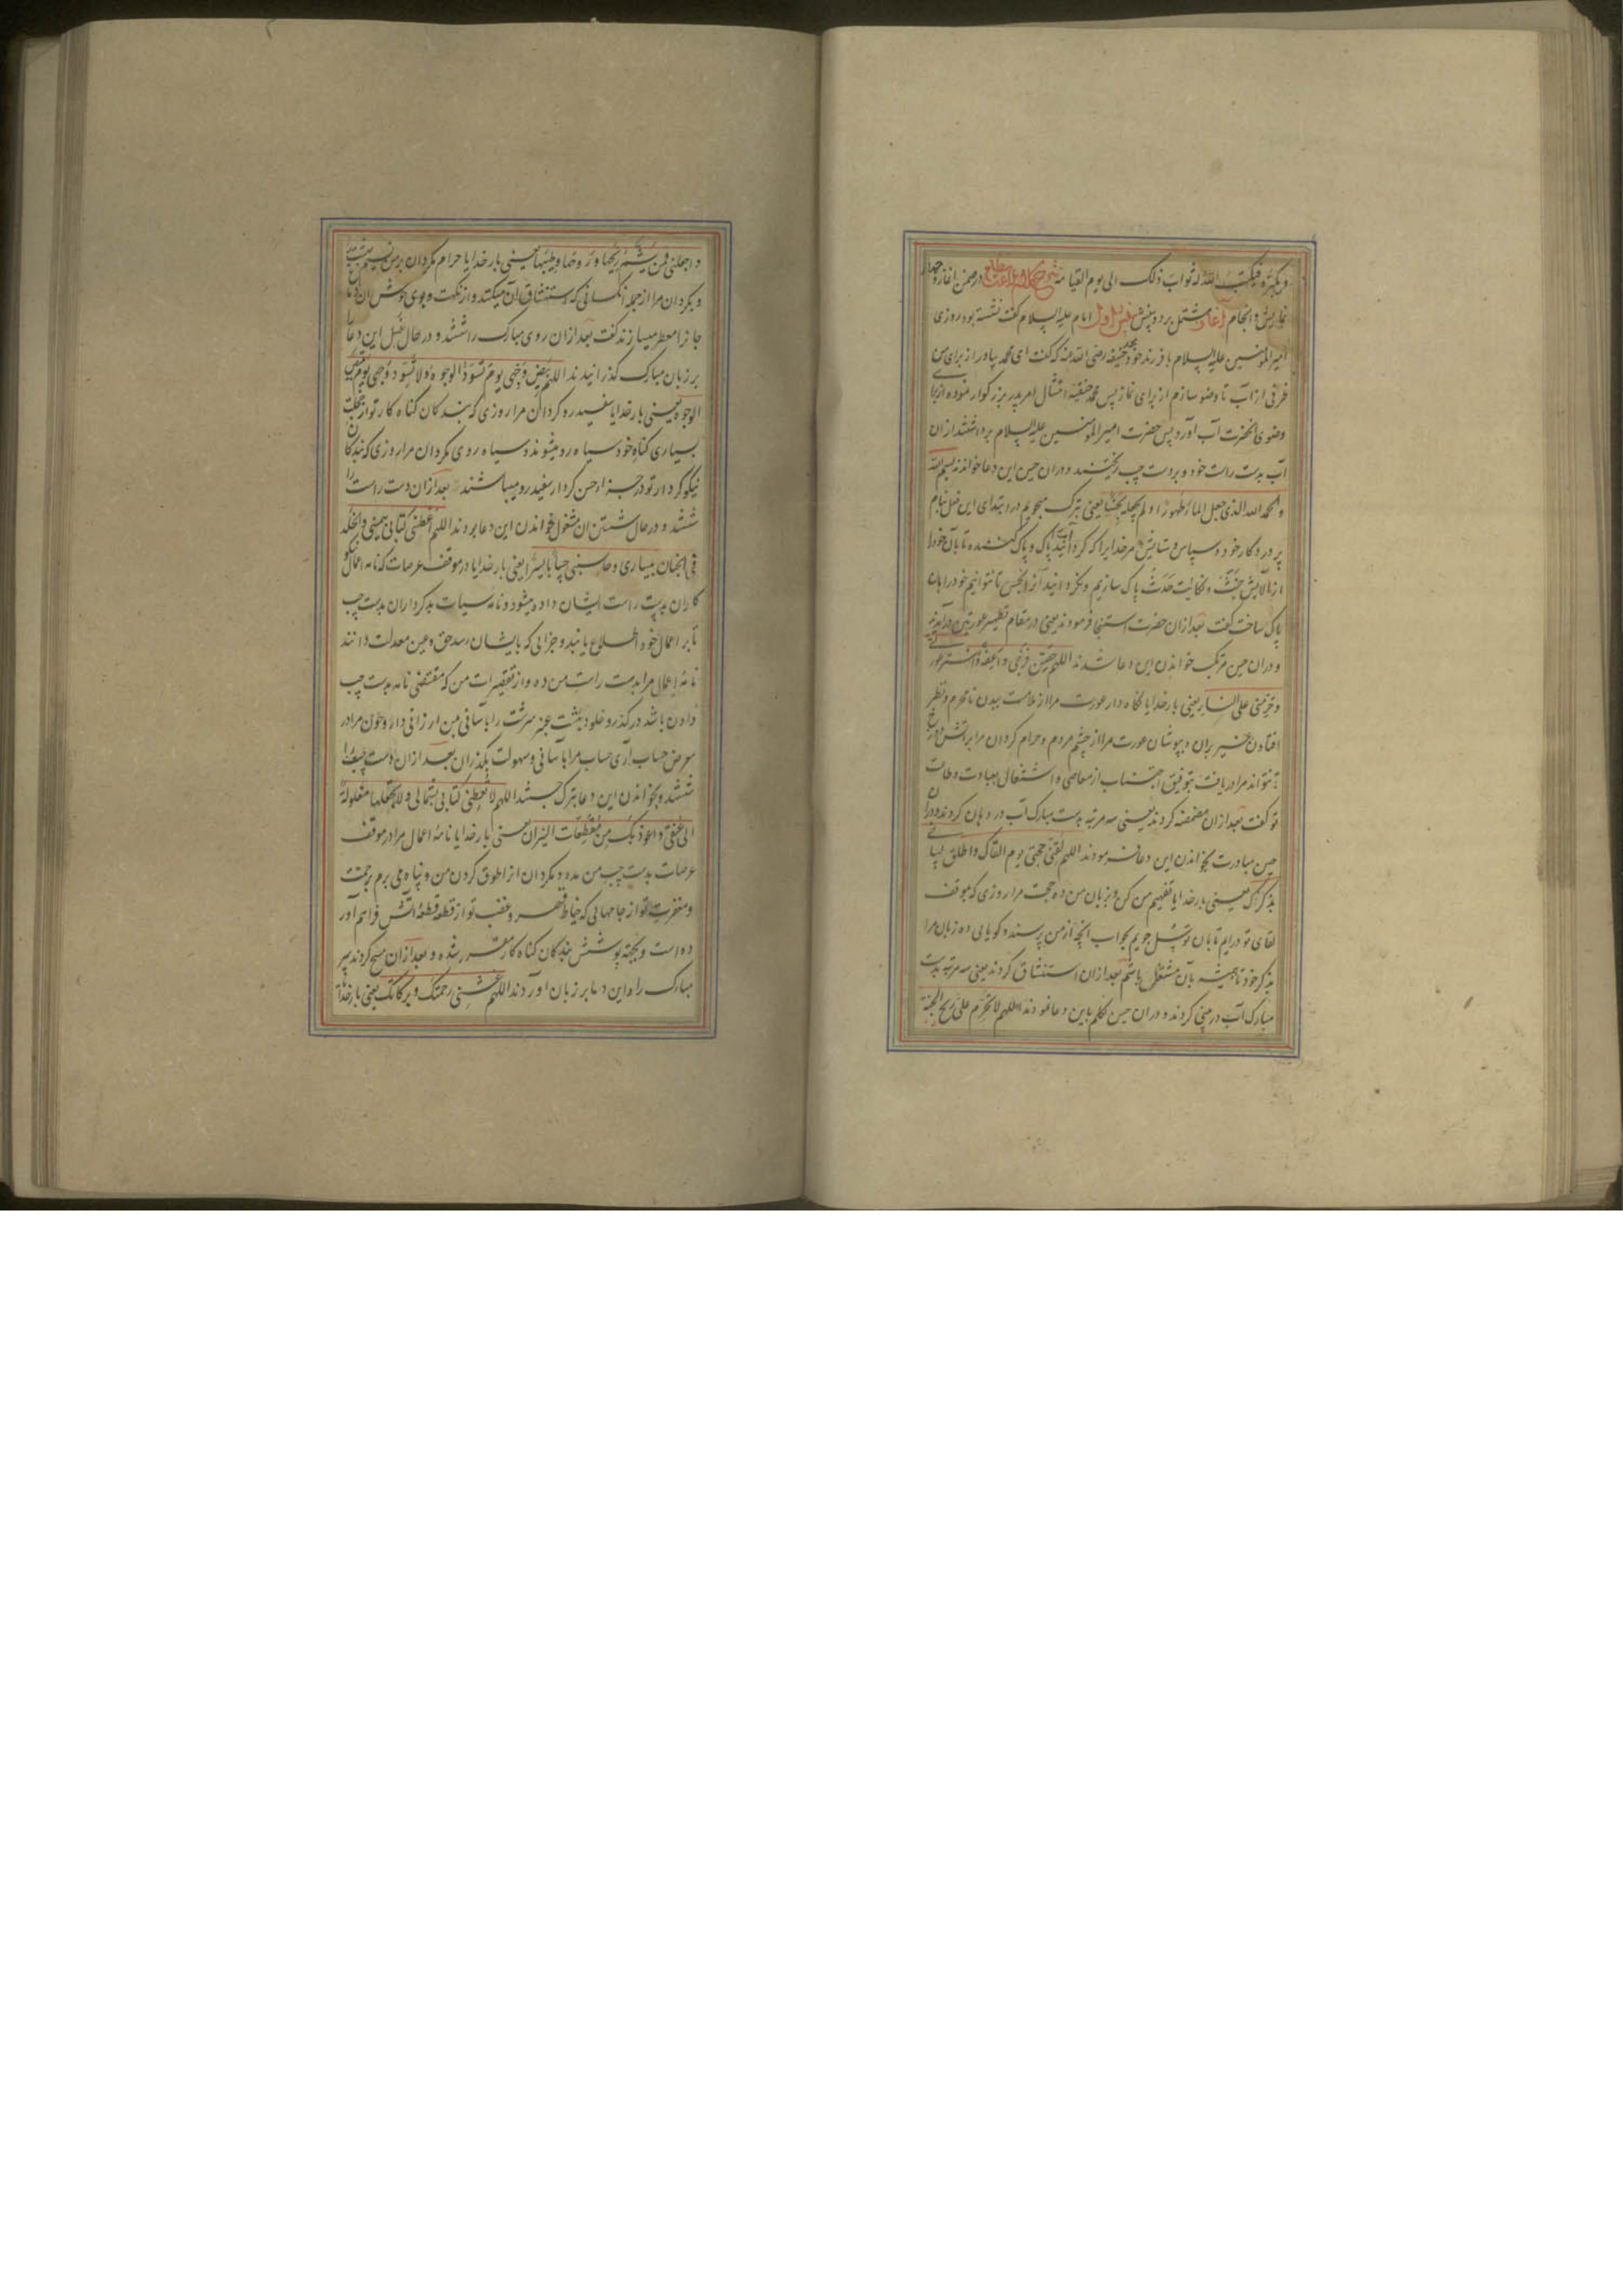 ویکبره فیکتب الله له ثواب ذلک الی یوم القیامة شرح کلام در ضمن آغاز و
نمایش و انجام آغاز مشتمل بر دو بینش بینش اول امام علیه السلام گفت نشسته بود روزی
امیر المؤمنین علیه السلام با فرزند خود محمد حنیفه رضی الله عنه که گفت ای محمد بیاور از برای من
ظرفی از آب تا وضو سازم از برای نماز پس محمد حنفیه امتثال امر پدر بزرگوار نموده از برای
وضوی آنحضرت آب آورد پس حضرت امیر المؤمنین علیه السلام برداشتند از ان
آب بدست راست خود و بر دست چپ ریختند و در ان حین این دعا خواندند بسم الله
والحمد لله الذی جعل الماء طهورا و لم یجعله نجسا یعنی تبرک میجویم در ابتدای این فعل بنام
پروردگار خود و سپاس و ستایش مر خدایرا که گردانید آب را پاک و پاک کننده تا بآن خود را
از آلایش خبث و حدث پاک سازیم و نگردانید آنرا نجس تا نتوانیم خود را بان
پاک ساخت گفت بعد از ان حضرت استنجا فرمودند یعنی در مقام تطهیر عورتین درآمدند
و در ان حین مرتکب خواندن این دعا شدند اللهم حصن فرجی و اعفه و استر عورتی
و حرمنی علی النار یعنی بار خدایا نگاه دار عورت مرا از ملامست بدن نامحرم و نظر
افتادن غیر بران و بپوشان عورت مرا از چشم مردم و حرام گردان مرا بر آتش دوزخ
نتواند مرا دریافت بتوفیق اجتناب از معاصی و اشتغال بعبادت و طاعت
تو گفت بعد از ان مضمضه کردند یعنی سه مرتبه بدست مبارک آب در دهان کردند و در ان
حین مبادرت بخواندن این دعا فرمودند اللهم لقنی حجتی یوم القاک و اطلق لسانی
بذکرک یعنی بار خدایا تفهیم من کن و بر زبان من ده حجت مرا روزی که بموقف
لقای تو درایم تا بان توسل جویم بجواب آنچه از من پرسند و گویایی ده زبان مرا
بذکر خود تا همیشه بآن مشتغل باشم بعد از ان استنشاق کردند یعنی سه مرتبه بدست
مبارک آب در بینی کردند و در ان حین تکلم باین دعا فرمودند اللهم لا تحرم علی ریح الجنة
و اجعلنی ممن یشم ریحها و روحها و طیبها یعنی بار خدایا حرام مگردان بر من نسیم بهشت
و بگردان مرا از جمله آنکسانی که استنشاق آن میکنند و از نکهت و بوی خوش ان
جانرا معطر میسازند گفت بعد از ان روی مبارک را شستند و در حال غسل این دعا
بر زبان مبارک گذرانیدند اللهم بیض وجهی یوم تسود الوجوه و لا تسود وجهی یوم تبیض
الوجوه یعنی بار خدایا سفیدرو گردان مرا روزی که بندگان گناه کار تو از خجلت
بسیاری گناه خود سیاه رو میشوند و سیاه روی مگردان مرا روزی که بندگان
نیکو کردار تو در جزاء حسن کردار سفیدرو میباشند بعد از ان دست راست را
شستند و در حال شستن ان مشغول خواندن این دعا بودند اللهم اعطنی کتابی بیمینی و الخلد
فی الجنان بیساری و حاسبنی حسابا یسیرا یعنی بار خدایا در موقف عرصات که نامه اعمال نیکو
کاران بدست راست ایشان داده میشود و نامه سیآت بدکرداران بدست چپ
تا بر اعمال خود اطلاع یابند و جزایی که بایشان رسد حق و عین معدلت دانند
نامه اعمال مرا بدست راست من ده و از تقصیرات من که مقتضی نامه بدست چپ
دادن باشد در گذر و خلود بهشت عنبر سرشت را بآسانی بمن ارزانی دار و چون مرا در
معرض حساب آری حساب مرا بآسانی و سهولت بگذران بعد از ان دست چپ را
شستند و بخواندن این دعا تبرک جستند اللهم لا تعطنی کتابی بشمالی و لا تجعلها مغلولة
الی عنقی و اعوذ بک من مقطعات النیران یعنی بار خدایا نامه اعمال مرا در موقف
عرصات بدست چپ من مده و مگردان انرا طوق گردن من و پناه می برم برحمت
و مغفرت تو از جامهایی که خیاط قهر و غضب تو از قطعه قطعه آتش فراهم آور
ده است و بجهة پوشش بندگان گناه کار مقرر شده و بعد از ان مسح کردند سر
مبارک را و این دعا بر زبان آوردند اللهم غشنی رحمتک و برکاتک یعنی بار خدایا